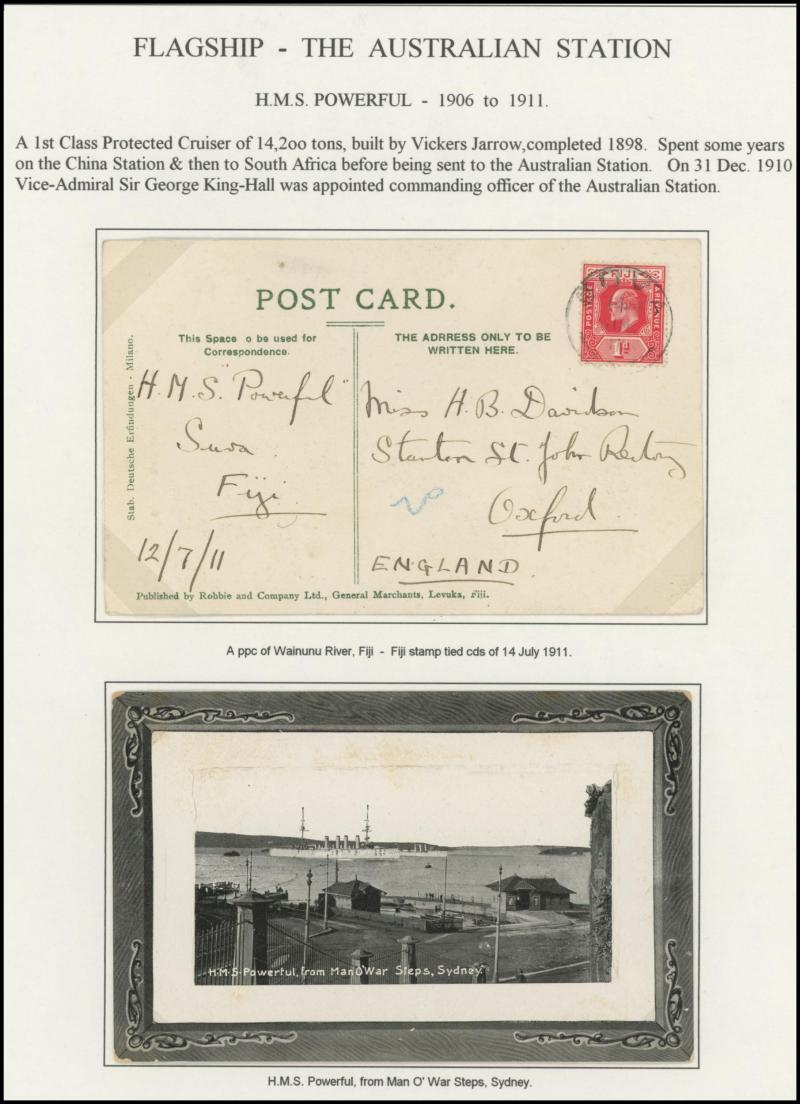 FLAGSHIP - THE AUSTRALIAN STATION
H.M.S. POWERFUL - 1906 to 1911.
A 1st Class Protected Cruiser of 14,2oo tons, built by Vickers Jarrow,completed 1898. Spent some years
on the China Station & then to South Africa before being sent to the Australian Station. On 31 Dec. 1910
Vice-Admiral Sir George King-Hall was appointed commanding officer of the Australian Station.
POST CARD.
This Space o be used for
Correspondence.
THE ADRRESS ONLY TO BE
WRITTEN HERE.
FIJI
POSTAGE
REVENUE
1d
Stab. Deutsche Erfindungen - Milano.
H.M.S. "Powerful"
Suva
Fiji
12/7/11
Miss H. B. Davidson
Stanton St. John Rectory
Oxford
ENGLAND.
Published by Robbie and Company Ltd., General Marchants, Levuka, Fiji.
A ppc of Wainunu River, Fiji - Fiji stamp tied cds of 14 July 1911.
H.M.S. Powerful, from Man O'War Steps, Sydney.
H.M.S. Powerful, from Man O' War Steps, Sydney.